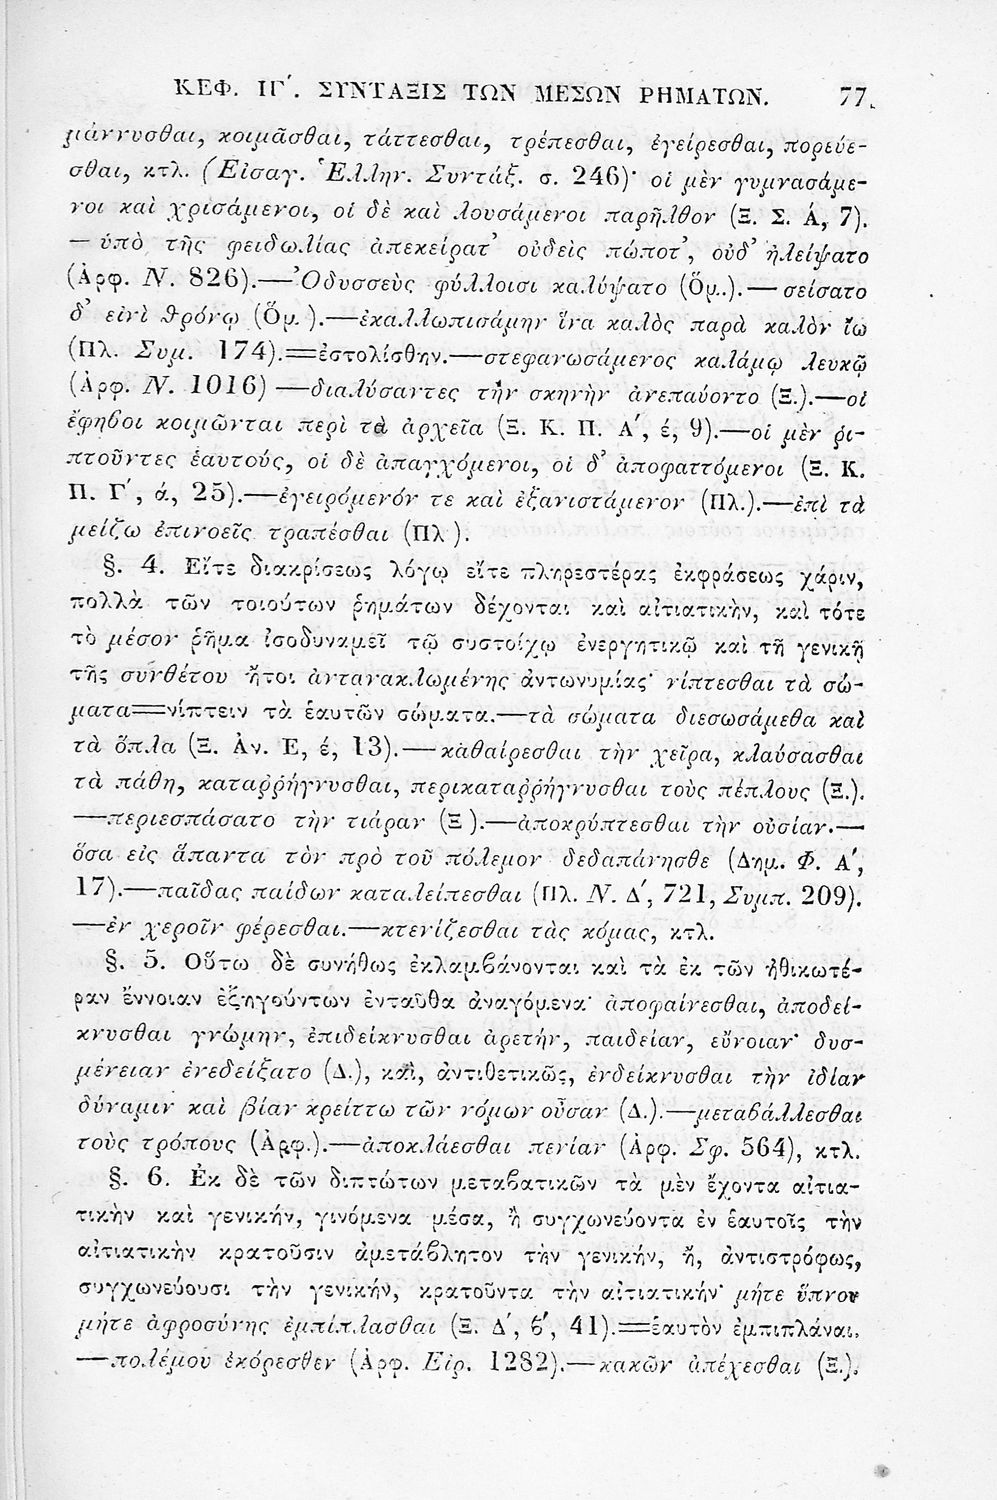 ΚΕΦ. ΙΓ΄. ΣΥΝΤΑΞΙΣ ΤΩΝ ΜΕΣΩΝ ΡΗΜΑΤΩΝ. 77.
μάννυσθαι, κοιμᾶσθαι, τάττεσθαι, τρέπεσθαι, ἐγείρεσθαι, πορεύε-
σθαι, κτλ. (Εἰσαγ. Ἑλλην. Συντάξ. σ. 246)· οἱ μὲν γυμνασάμε-
νοι καὶ χρισάμενοι, οἱ δὲ καὶ λουσάμενοι παρῆλθον (Ξ. Σ. Ά, 7).
— ὑπὸ τῆς φειδωλίας ἀπεκείρατ᾽ οὐδεὶς πώποτ᾽, οὐδ᾽ ἠλείψατο
(Ἀρφ. Ν. 826).—Ὀδυσσεὺς φύλλοισι καλύψατο (Ὅμ..).—σείσατο
δ᾽ εἰνὶ θρόνῳ (Ὅμ.).—ἐκαλλωπισάμην ἵνα καλὸς παρὰ καλὸν ἴω
(Πλ. Συμ. 174).=ἐστολίσθην.—στεφανωσάμενος καλάμῳ λευκῷ
(Ἀρφ. Ν. 1016)—διαλύσαντες τὴν σκηνὴν ἀνεπαύοντο (Ξ.).—οἱ
ἔφηβοι κοιμῶνται περὶ τὰ ἀρχεῖα (Ξ. Κ. Π. Α΄, έ, 9).—οἱ μὲν ῥι-
πτοῦντες ἑαυτούς, οἱ δὲ ἀπαγχόμενοι, οἱ δ᾽ ἀποφαττόμενοι (Ξ. Κ.
Π. Γ΄, ά, 25).—ἐγειρόμενόν τε καὶ ἐξανιστάμενον (Πλ.).—ἐπὶ τὰ
μείζω ἐπινοεῖς τραπέσθαι (Πλ).
§. 4. Εἴτε διακρίσεως λόγῳ εἴτε πληρεστέρας ἐκφράσεως χάριν,
πολλὰ τῶν τοιούτων ῥημάτων δέχονται καὶ αἰτιατικὴν, καὶ τότε
τὸ μέσον ῥῆμα ἰσοδυναμεῖ τῷ συστοίχῳ ἐνεργητικῷ καὶ τῇ γενικῇ
τῆς συνθέτου ἤτοι ἀντανακλωμένης ἀντωνυμίας· νίπτεσθαι τὰ σώ-
ματα=νίπτειν τὰ ἑαυτῶν σώματα.—τὰ σώματα διεσωσάμεθα καὶ
τὰ ὅπλα (Ξ. Ἀν. Ε, έ, 13).—καθαίρεσθαι τὴν χεῖρα, κλαύσασθαι
τὰ πάθη, καταῤῥήγνυσθαι, περικαταῤῥήγνυσθαι τοὺς πέπλους (Ξ.).
—περιεσπάσατο τὴν τιάραν (Ξ).—ἀποκρύπτεσθαι τὴν οὐσίαν.—
ὅσα εἰς ἅπαντα τὸν πρὸ τοῦ πόλεμον δεδαπάνησθε (Δημ. Φ. Α΄,
17).—παῖδας παίδων καταλείπεσθαι (Πλ. Ν. Δ΄, 721, Συμπ. 209).
—ἐν χεροῖν φέρεσθαι.—κτενίζεσθαι τὰς κόμας, κτλ.
§. 5. Οὕτω δὲ συνήθως ἐκλαμβάνονται καὶ τὰ ἐκ τῶν ἠθικωτέ-
ραν ἔννοιαν ἐξηγούντων ἐνταῦθα ἀναγόμενα· ἀποφαίνεσθαι, ἀποδεί-
κνυσθαι γνώμην, ἐπιδείκνυσθαι ἀρετήν, παιδείαν, εὔνοιαν· δυσ-
μένειαν ἐνεδείξατο (Δ.), καὶ, ἀντιθετικῶς, ἐνδείκνυσθαι τὴν ἰδίαν
δύναμιν καὶ βίαν κρείττω τῶν νόμων οὖσαν (Δ.).—μεταβάλλεσθαι
τοὺς τρόπους (Ἀρφ.).—ἀποκλάεσθαι πενίαν (Ἀρφ. Σφ. 564), κτλ.
§. 6. Ἐκ δὲ τῶν διπτώτων μεταβατικῶν τὰ μὲν ἔχοντα αἰτια-
τικὴν καὶ γενικήν, γινόμενα μέσα, ἢ συγχωνεύοντα ἐν ἑαυτοῖς τὴν
αἰτιατικὴν κρατοῦσιν ἀμετάβλητον τὴν γενικήν, ἤ, ἀντιστρόφως,
συγχωνεύουσι τὴν γενικήν, κρατοῦντα τὴν αἰτιατικήν· μήτε ὕπνου
μήτε ἀφροσύνης ἐμπίπλασθαι (Ξ. Δ΄, β΄, 41).=ἑαυτὸν ἐμπιπλάναι.
—πολέμου ἐκόρεσθεν (Ἀρφ. Εἰρ. 1282).—κακῶν ἀπέχεσθαι (Ξ.).